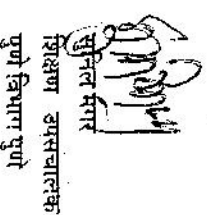 सुनिल मगर
शिक्षण उपसंचालक
पुणे विभाग पुणे